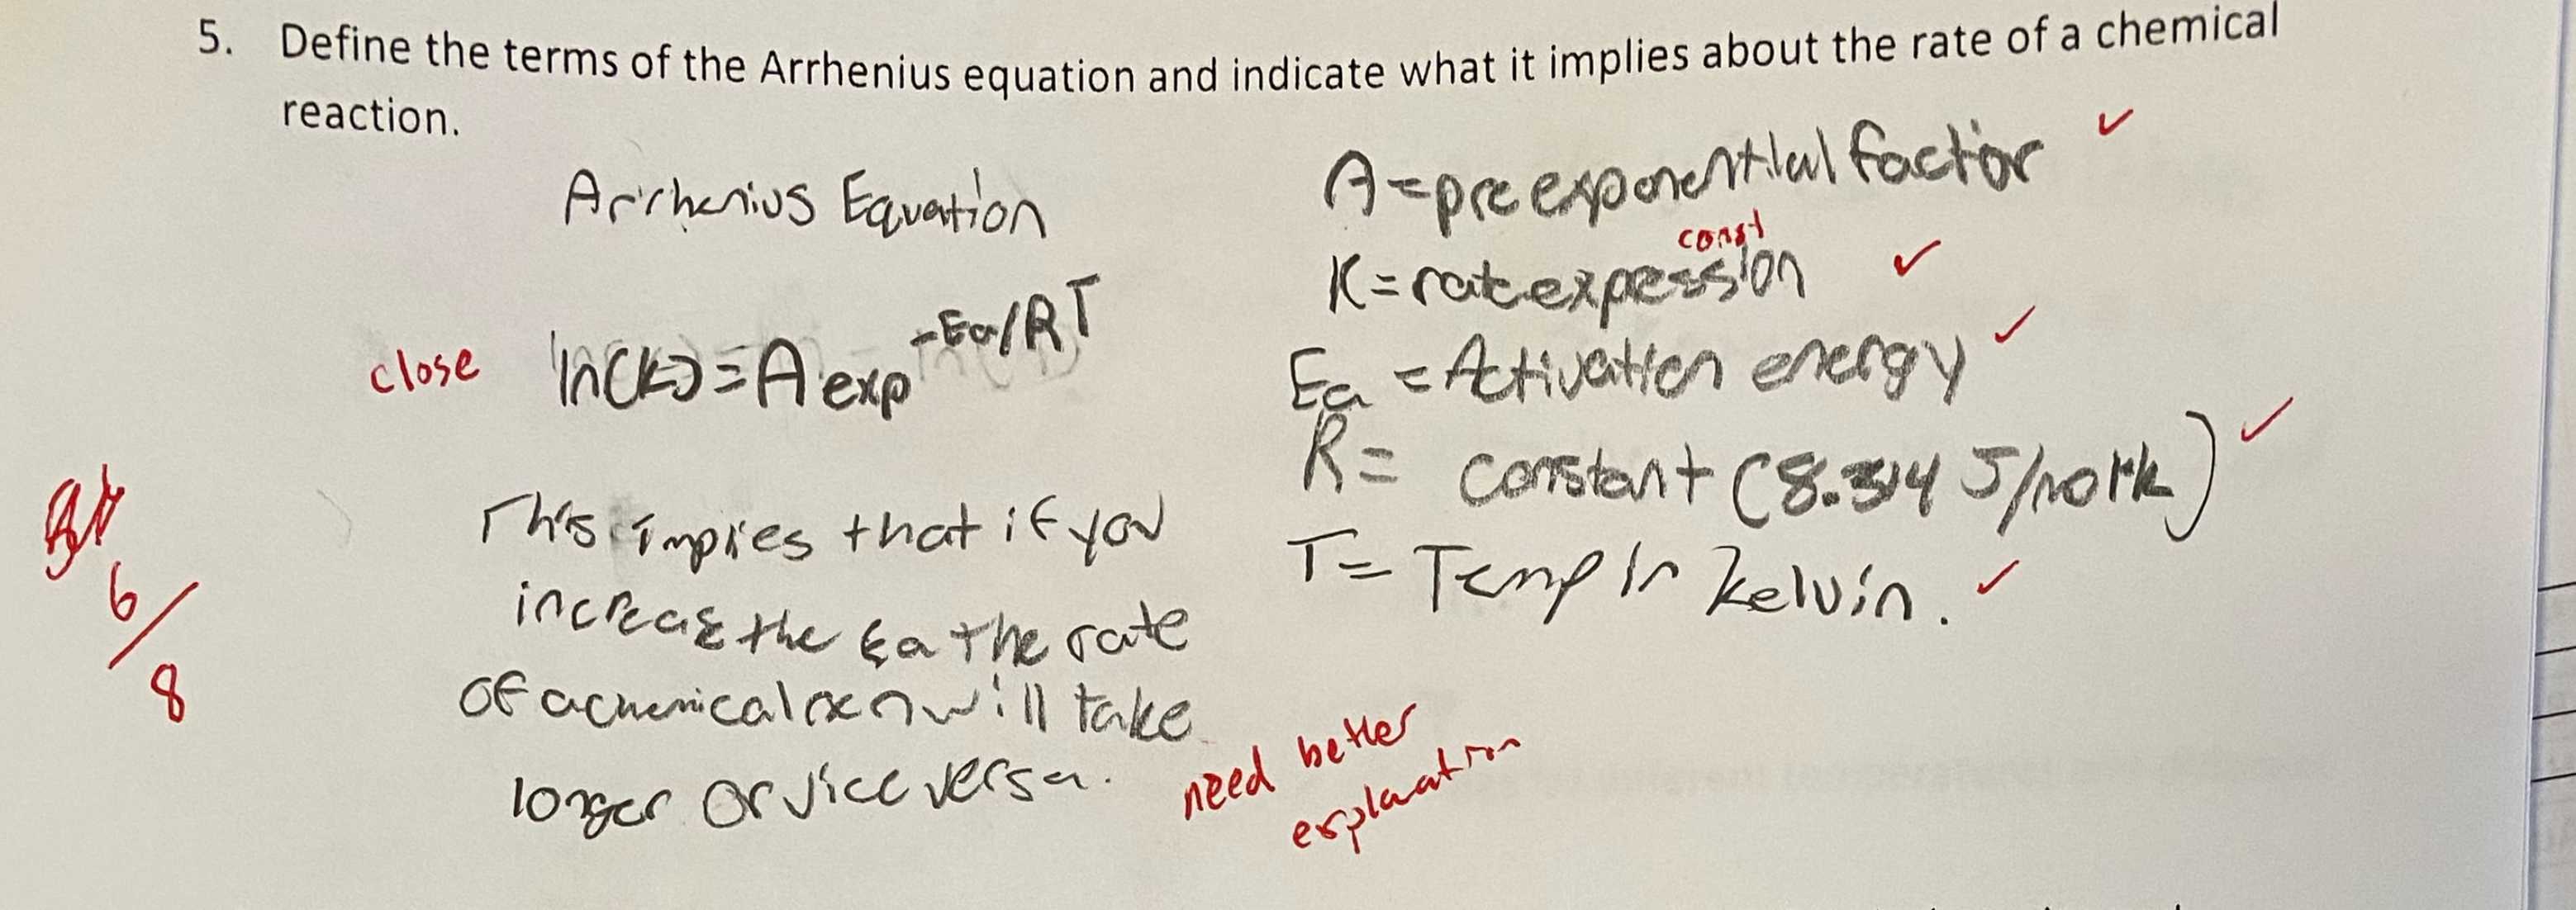 5. Define the terms of the Arrhenius equation and indicate what it implies about the rate of a chemical
reaction.
Arrhenius Equation
close ln(k) = A exp -Ea/RT
This impies that if you
increase the Ea the rate
of a chemical rxn will take
longer or vice versa.
need better
explanation
6/8
A = pre exponential factor ✓
const
K = rate expession ✓
Ea = Activation energy ✓
R = constant (8.314 J/molk) ✓
T = Temp in kelvin. ✓